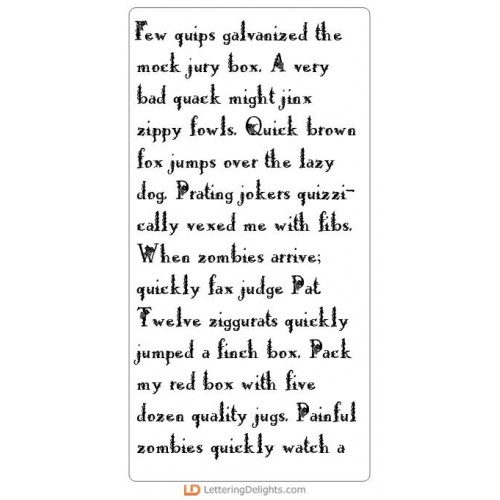 Few quips galvanized the
mock jury box. A very
bad quack might jinx
zippy fowls. Quick brown
fox jumps over the lazy
dog. Prating jokers quizzi-
cally vexed me with fibs.
When zombies arrive;
quickly fax judge Pat
Twelve ziggurats quickly
jumped a finch box. Pack
my red box with five
dozen quality jugs. Painful
zombies quickly watch a
LD LetteringDelights.com